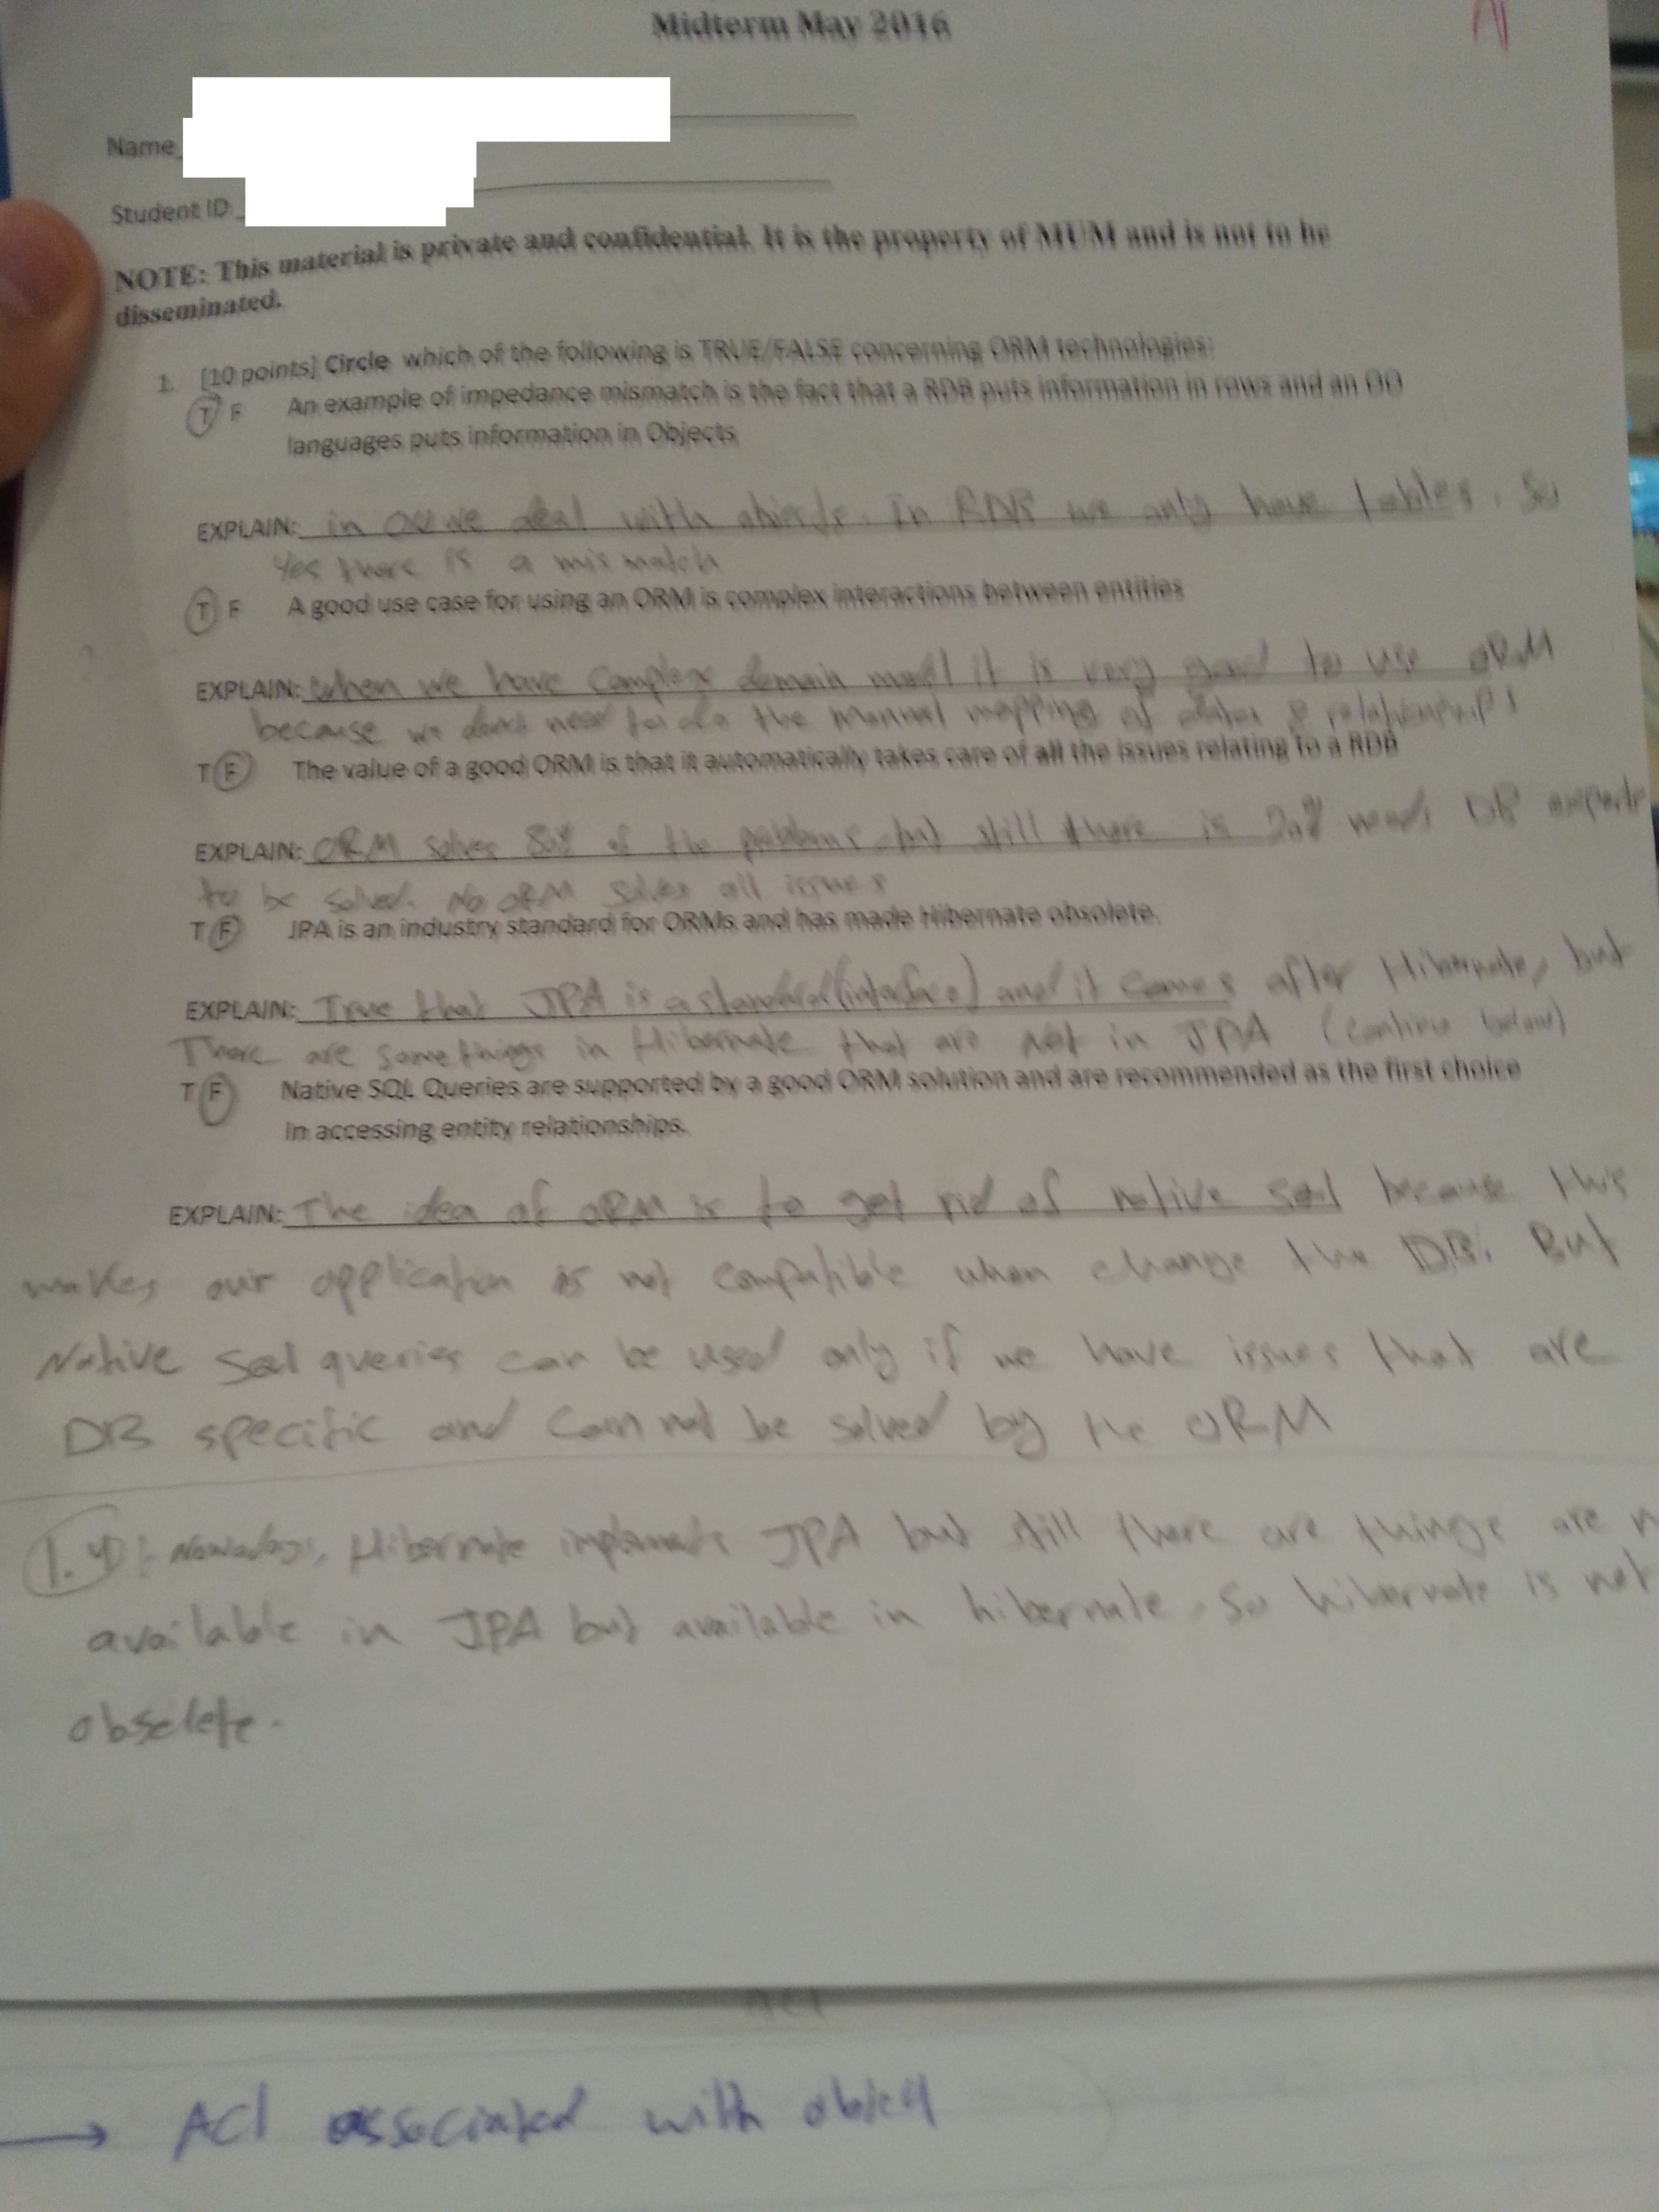 Midterm May 2016
Name
Student ID
NOTE: This material is private and confidential. It is the property of MUM and is not to be
disseminated.
1. [10 points] Circle which of the following is TRUE/FALSE concerning ORM technologies:
T F An example of impedance mismatch is the fact that a RDB puts information in rows and an OO
languages puts information in Objects
EXPLAIN: in we deal with objects. In RDB we only have tables. So
Yes there is a mismatch
T F A good use case for using an ORM is complex interactions between entities
EXPLAIN: when we have complex domain model it is very good to use ORM
because we don't need to do the manual mapping of & relationships
T F The value of a good ORM is that it automatically takes care of all the issues relating to a RDB
EXPLAIN: ORM solves 80% of the problems but still there is 20% needs DB experts
to be solved. No ORM solves all issues
T F JPA is an industry standard for ORMs and has made Hibernate obsolete.
EXPLAIN: True that JPA is a standard (interface) and it comes after Hibernate, but
There are some things in Hibernate that are not in JPA (continue below)
T F Native SQL Queries are supported by a good ORM solution and are recommended as the first choice
In accessing entity relationships.
EXPLAIN: The idea of ORM is to get rid of native sql because this
makes our application is not compatible when change the DB. But
Native sql queries can be used only if we have issues that are
DB specific and can not be solved by the ORM
1.4: Nowadays, Hibernate implements JPA but still there are things are
available in JPA but available in hibernate. So hibernate is not
obselete.
→ ACl associated with object